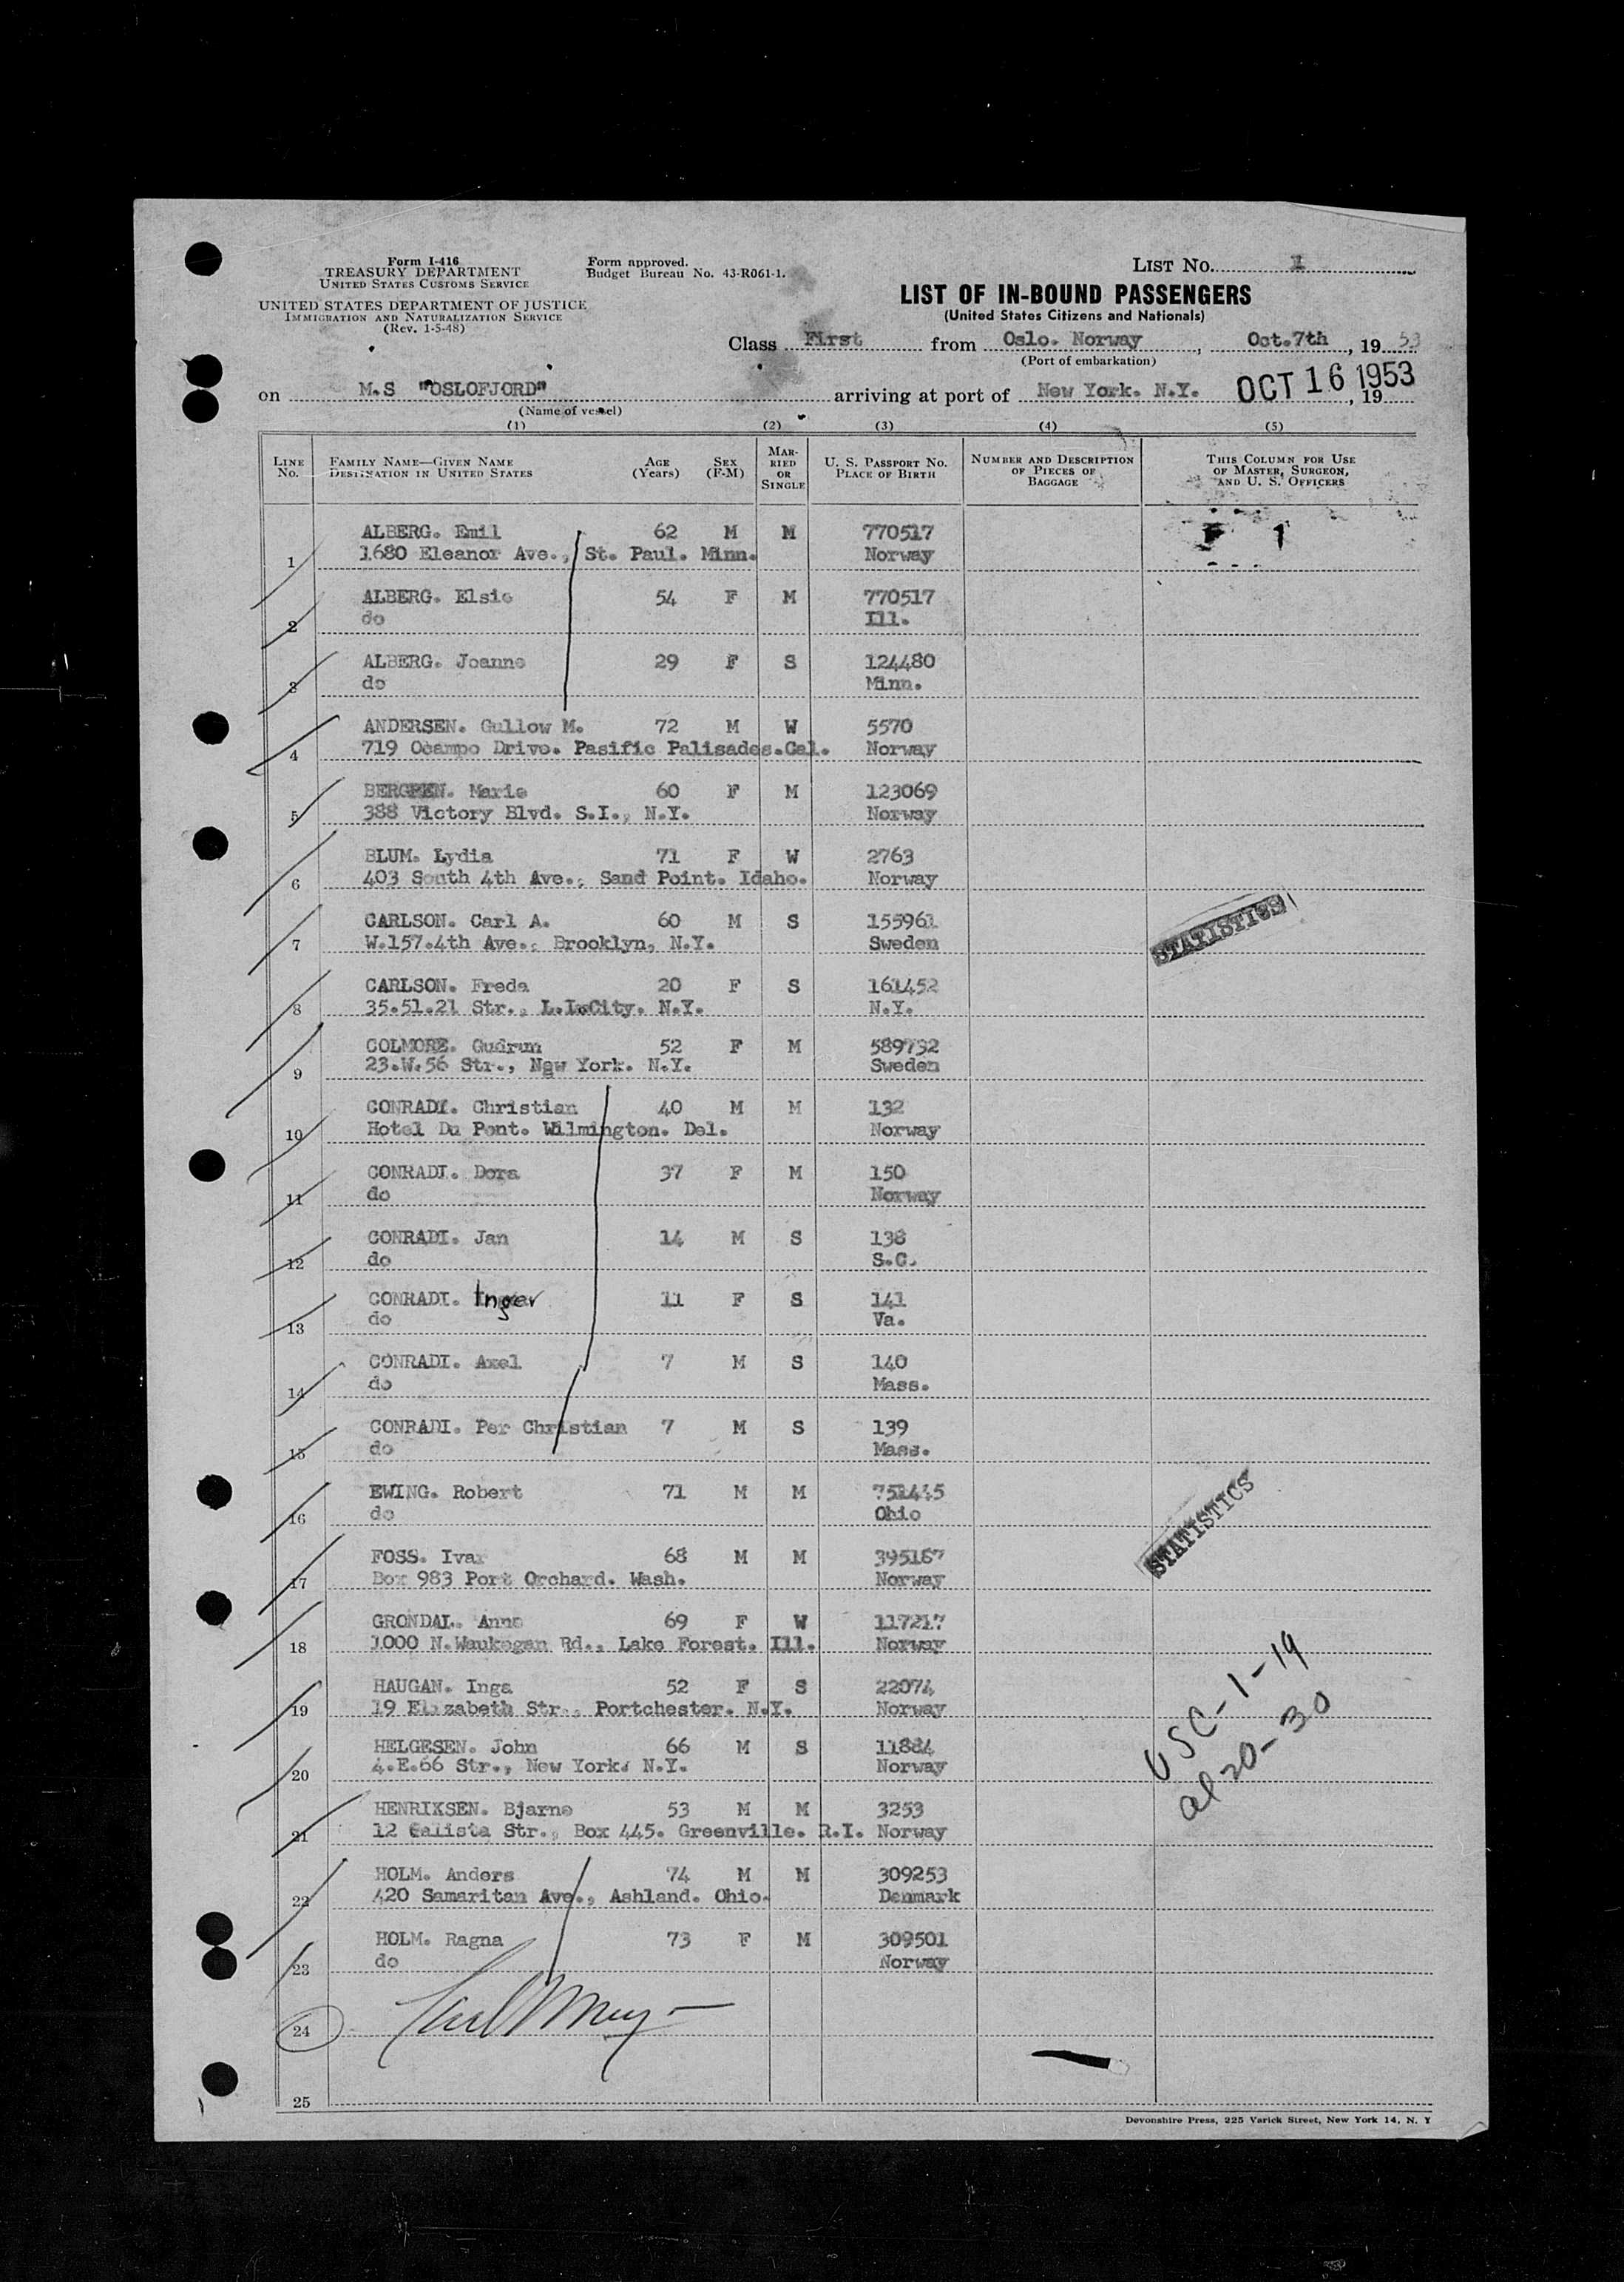 Form I-416
TREASURY DEPARTMENT
UNITED STATES CUSTOMS SERVICE
UNITED STATES DEPARTMENT OF JUSTICE
IMMIGRATION AND NATURALIZATION SERVICE
(Rev. 1-5-48)
Form approved.
Budget Bureau No. 43-R061-1.
LIST NO. 1
LIST OF IN-BOUND PASSENGERS
(United States Citizens and Nationals)
Class First from Oslo. Norway, Oct.7th, 1953
(Port of embarkation)
on M.S "OSLOFJORD" arriving at port of New York. N.Y. OCT 16 1953, 19
(Name of vessel)
(1) (2) (3) (4) (5)
LINE NO. FAMILY NAME—GIVEN NAME DESTINATION IN UNITED STATES AGE (Years) SEX (F-M) MARRIED OR SINGLE U. S. PASSPORT NO. PLACE OF BIRTH NUMBER AND DESCRIPTION OF PIECES OF BAGGAGE THIS COLUMN FOR USE OF MASTER, SURGEON, AND U. S. OFFICERS
ALBERG. Emil 62 M M 770517 1
1 1680 Eleanor Ave., St. Paul. Minn. Norway
ALBERG. Elsie 54 F M 770517
2 do Ill.
ALBERG. Joanne 29 F S 124480
3 do Minn.
ANDERSEN. Gullow M. 72 M W 5570
4 719 Ocampo Drive. Pasific Palisades.Cal. Norway
BERGREN. Marie 60 F M 123069
5 388 Victory Blvd. S.I., N.Y. Norway
BLUM. Lydia 71 F W 2763
6 403 South 4th Ave., Sand Point. Idaho. Norway
CARLSON. Carl A. 60 M S 155961
7 W.157.4th Ave., Brooklyn, N.Y. Sweden STATISTICS
CARLSON. Freda 20 F S 161452
8 35.51.21 Str., L.I.City. N.Y. N.Y.
COLMORE. Gudrun 52 F M 589732
9 23.W.56 Str., New York. N.Y. Sweden
CONRADI. Christian 40 M M 132
10 Hotel Du Pont. Wilmington. Del. Norway
CONRADI. Dora 37 F M 150
11 do Norway
CONRADI. Jan 14 M S 138
12 do S.C.
CONRADI. Inger 11 F S 141
13 do Va.
CONRADI. Axel 7 M S 140
14 do Mass.
CONRADI. Per Christian 7 M S 139
15 do Mass.
EWING. Robert 71 M M 751445
16 do Ohio STATISTICS
FOSS. Ivar 68 M M 395187
17 Box 983 Port Orchard. Wash. Norway
GRONDAL. Anne 69 F W 117217
18 1000 N.Waukegan Rd., Lake Forest. Ill. Norway
HAUGAN. Inga 52 F S 22074
19 19 Elizabeth Str., Portchester. N.Y. Norway
USC-1-19
HELGESEN. John 66 M S 11884
20 4.E.66 Str., New York. N.Y. Norway
al 20-30
HENRIKSEN. Bjarne 53 M M 3253
21 12 Calista Str., Box 445. Greenville. R.I. Norway
HOLM. Anders 74 M M 309253
22 420 Samaritan Ave., Ashland. Ohio. Denmark
HOLM. Ragna 73 F M 309501
23 do Norway
24
25
Devonshire Press, 225 Varick Street, New York 14, N. Y